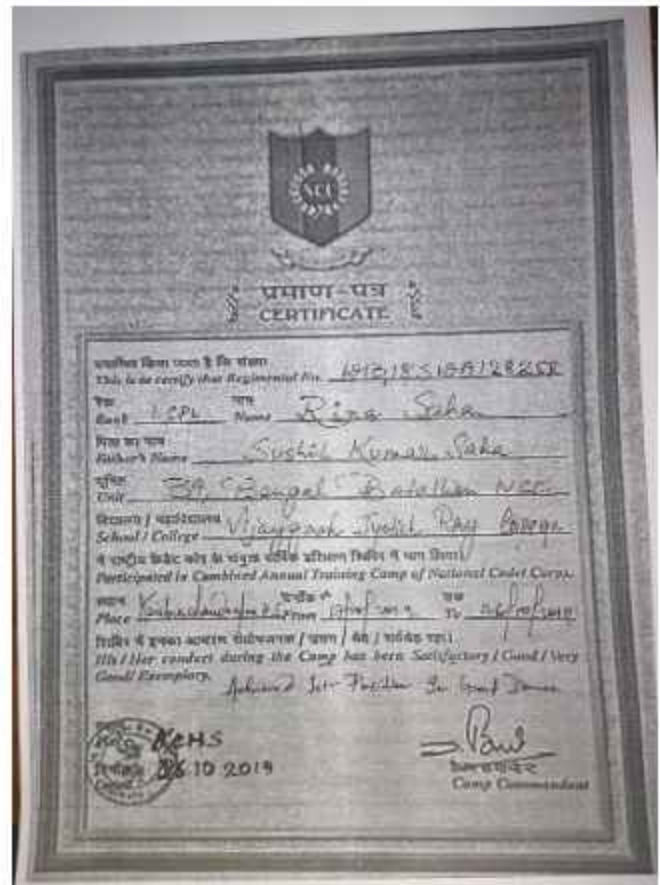 NCC
प्रमाण-पत्र
CERTIFICATE
प्रमाणित किया जाता है कि संख्या
This is to certify that Regimental No.
रैंक नाम
Rank LCPL Name Rina Saha
पिता का नाम
Father's Name Sushil Kumar Saha
यूनिट
Unit 39, "Bengal" Batalian NCC
विद्यालय / महाविद्यालय
School / College Vijaygarh Jyotish Ray College
ने राष्ट्रीय कैडेट कोर के संयुक्त वार्षिक प्रशिक्षण शिविर में भाग लिया।
Participated in Combined Annual Training Camp of National Cadet Corps.
स्थान दिनाँक से तक
Place From To
शिविर में इनका आचरण संतोषजनक / उत्तम / श्रेष्ठ / सर्वश्रेष्ठ रहा।
His / Her conduct during the Camp has been Satisfactory / Good / Very
Good / Exemplary.
Achieved 1st Position In Group Dance
KCHS
26.10 2019
Paul
Camp Commandant